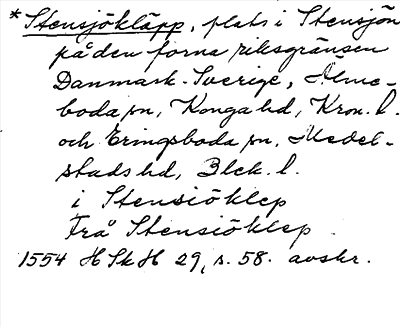 * Stensjökläpp, plats i Stensjön
på den forna riksgränsen
Danmark-Sverige, Älme-
boda sn, Konga hd, Kron. l.
och Eringsboda sn, Medel-
stads hd, Blek. l.
i Stensiöklep
Frå Stensiöklep
1554 HSkH 29, s. 58. avskr.